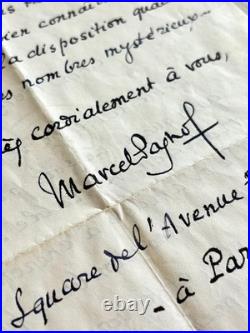 ien connaî
la disposition qua
es nombres mystérieux...
cordialement à vous,
Marcel Pagnol
Square de l'Avenue
- à Par